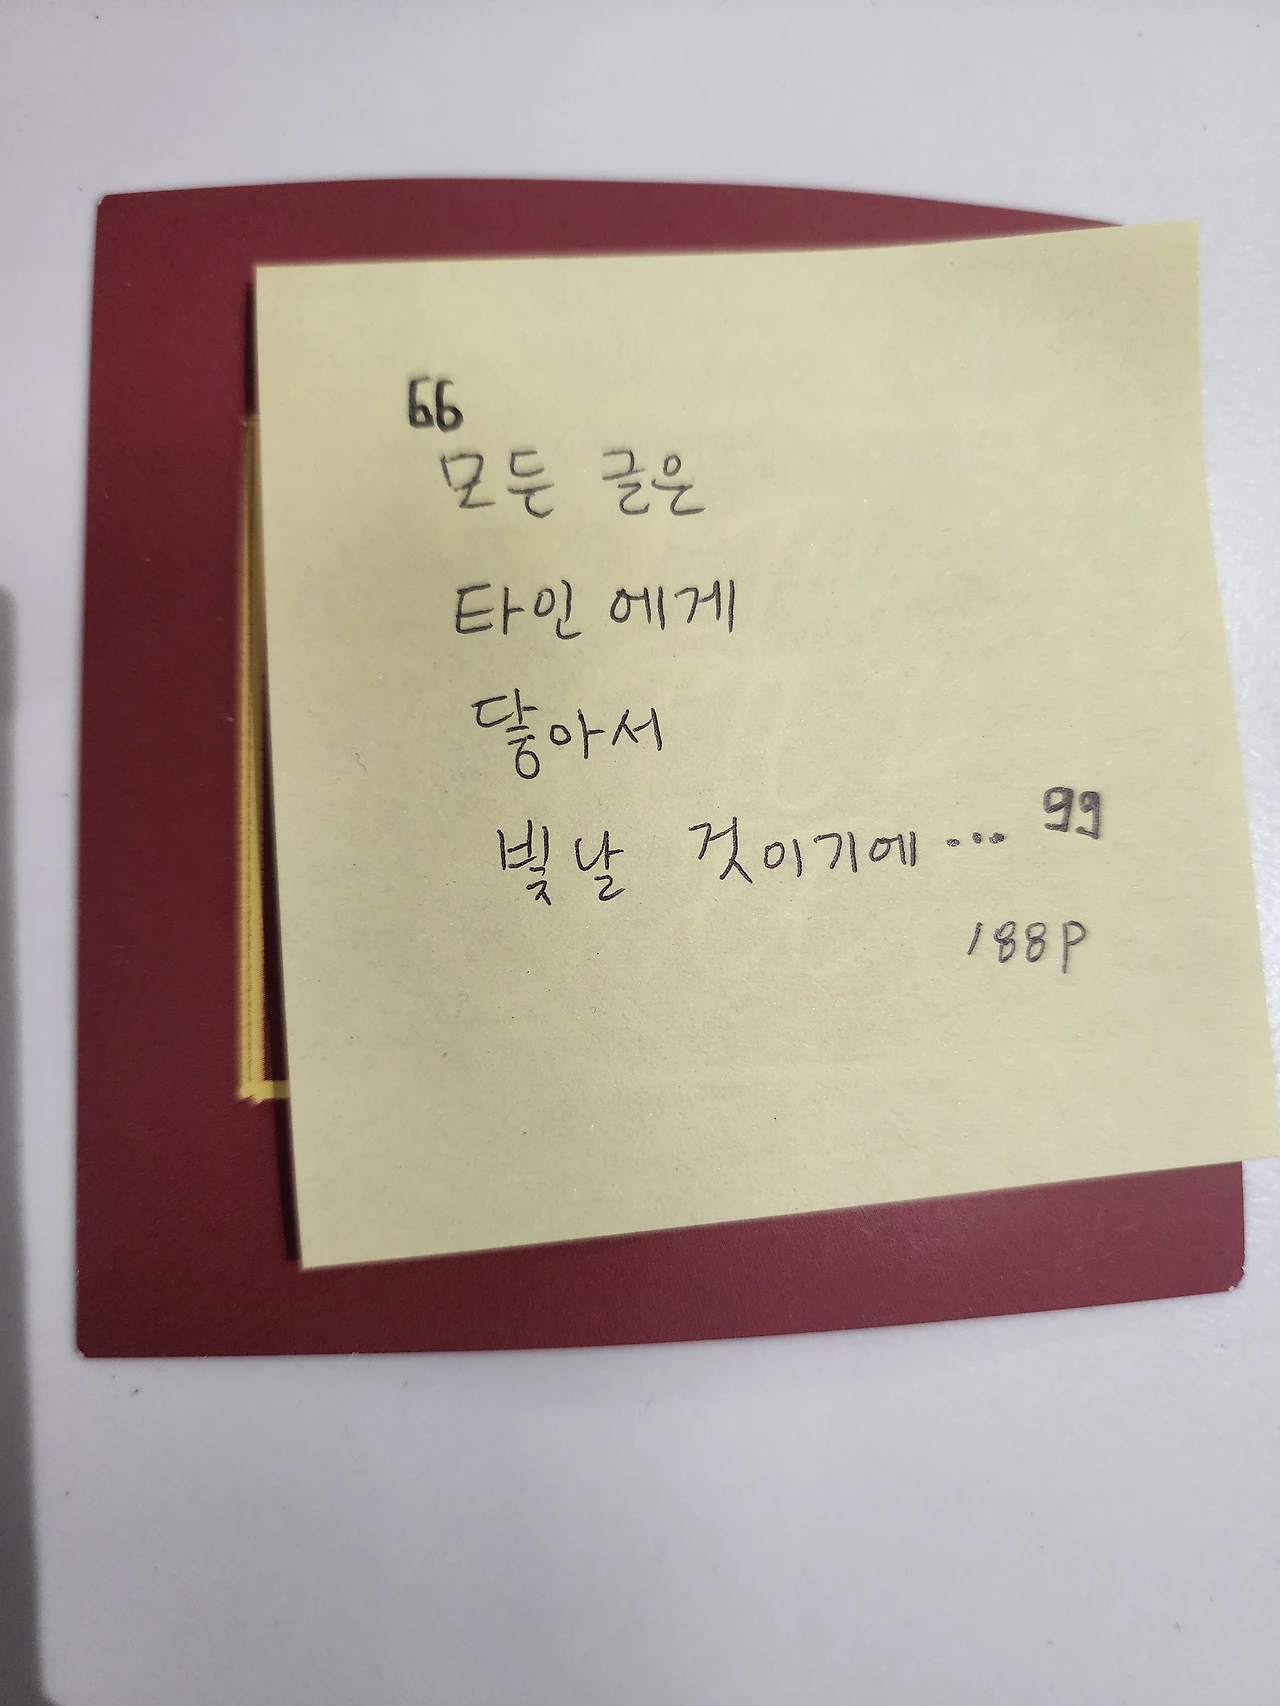 “
모든 글은
타인에게
닿아서
빛날 것이기에... ”
188P